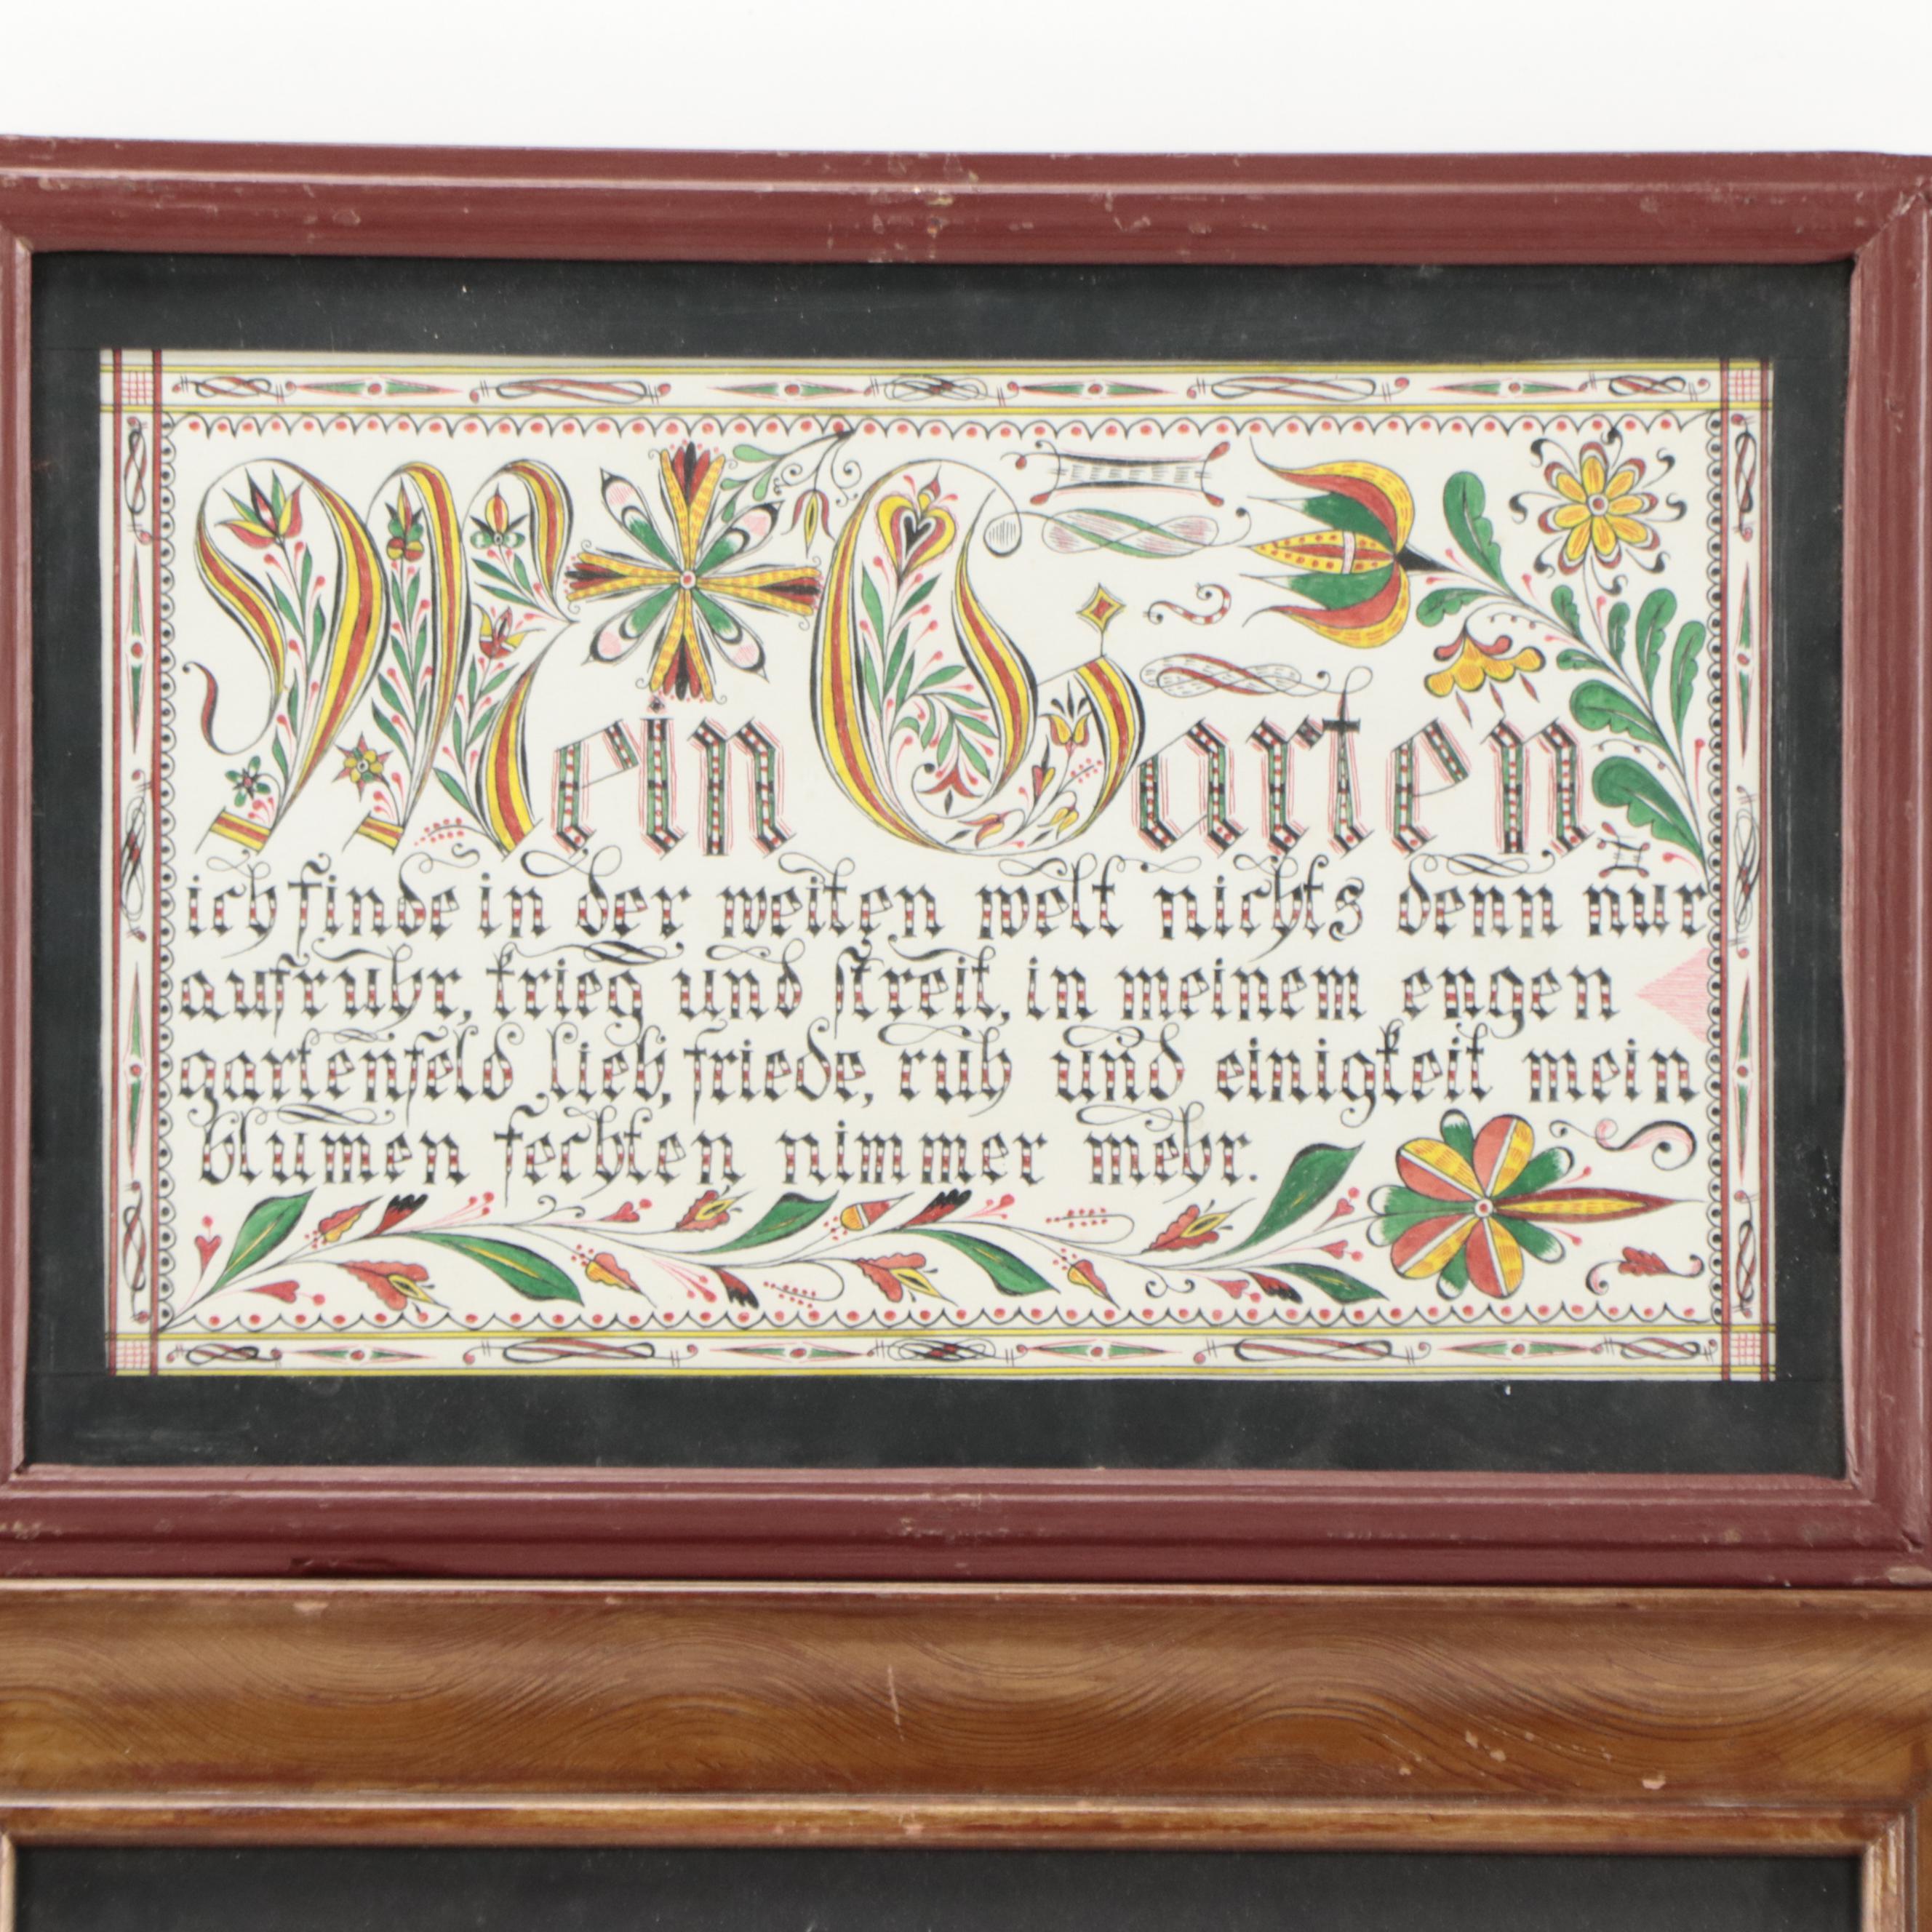 Mein Garten
ich finde in der weiten welt nichts denn nur
aufruhr, krieg und streit, in meinem engen
gartenfeld lieb, friede, ruh und einigkeit mein
blumen fechten nimmer mehr.